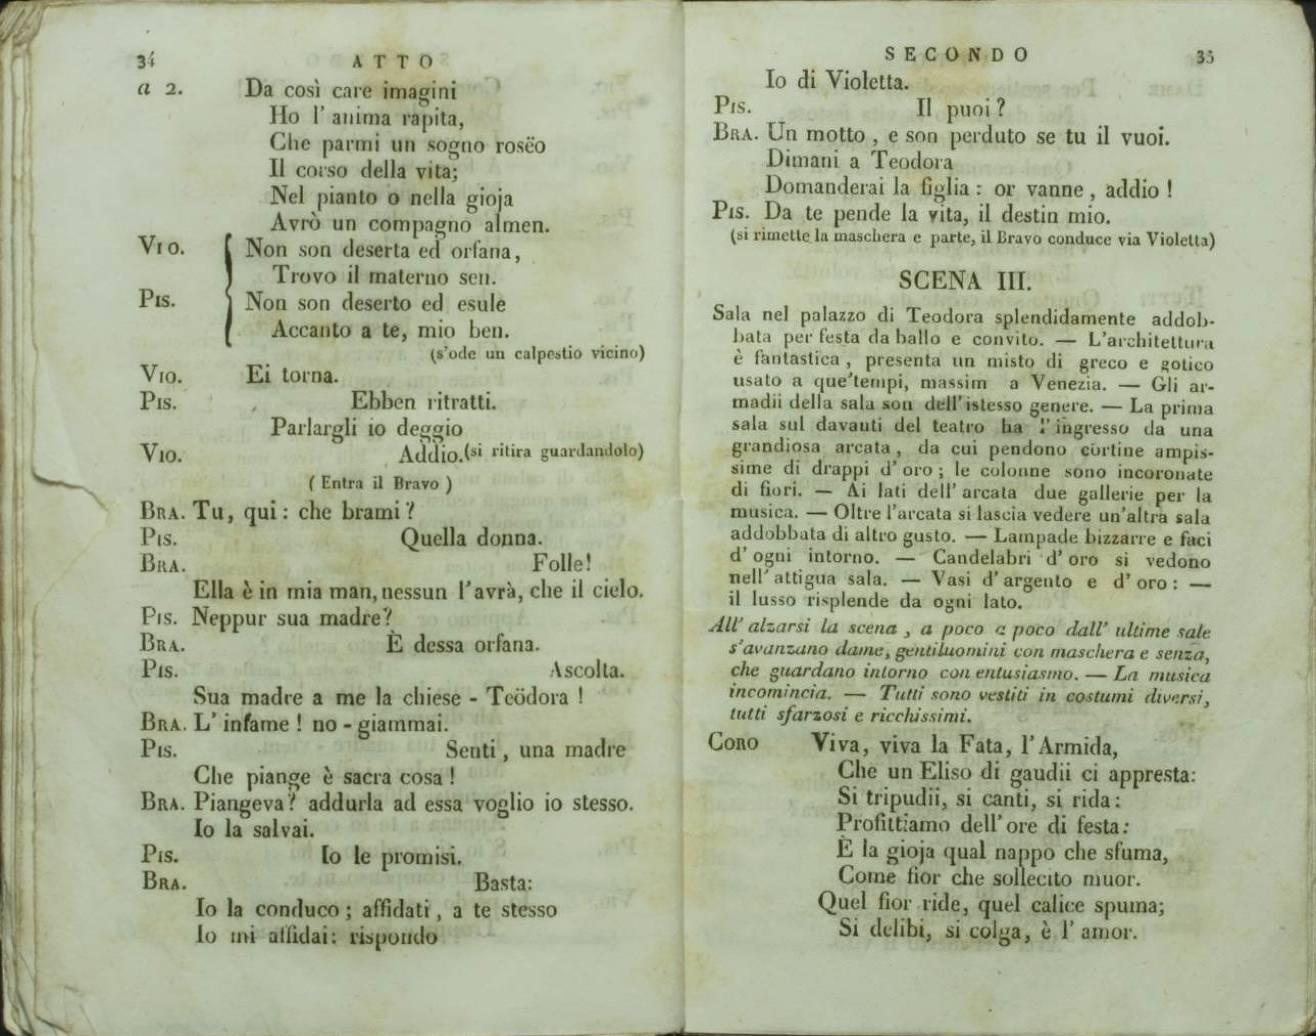 34 ATTO
a 2. Da così care imagini
Ho l' anima rapita,
Che parmi un sogno rosëo
Il corso della vita;
Nel pianto o nella gioja
Avrò un compagno almen.
VIO. Non son deserta ed orfana,
Trovo il materno sen.
PIS. Non son deserto ed esule
Accanto a te, mio ben.
(s'ode un calpestio vicino)
VIO. Ei torna.
PIS. Ebben ritratti.
Parlargli io deggio
VIO. Addio. (si ritira guardandolo)
( Entra il Bravo )
BRA. Tu, qui: che brami?
PIS. Quella donna.
BRA. Folle!
Ella è in mia man, nessun l'avrà, che il cielo.
PIS. Neppur sua madre?
BRA. È dessa orfana.
PIS. Ascolta.
Sua madre a me la chiese - Teödora !
BRA. L' infame ! no - giammai.
PIS. Senti, una madre
Che piange è sacra cosa !
BRA. Piangeva? addurla ad essa voglio io stesso.
Io la salvai.
PIS. Io le promisi.
BRA. Basta:
Io la conduco ; affidati, a te stesso
Io mi affidai: rispondo
SECONDO 35
Io di Violetta.
PIS. Il puoi ?
BRA. Un motto , e son perduto se tu il vuoi.
Dimani a Teodora
Domanderai la figlia : or vanne , addio !
PIS. Da te pende la vita, il destin mio.
(si rimette la maschera e parte, il Bravo conduce via Violetta)
SCENA III.
Sala nel palazzo di Teodora splendidamente addob-
bata per festa da ballo e convito. — L'architettura
è fantastica , presenta un misto di greco e gotico
usato a que'tempi, massim a Venezia. — Gli ar-
madii della sala son dell'istesso genere. — La prima
sala sul davanti del teatro ha l'ingresso da una
grandiosa arcata , da cui pendono cortine ampis-
sime di drappi d' oro ; le colonne sono incoronate
di fiori. — Ai lati dell' arcata due gallerie per la
musica. — Oltre l'arcata si lascia vedere un'altra sala
addobbata di altro gusto. — Lampade bizzarre e faci
d' ogni intorno. — Candelabri d' oro si vedono
nell' attigua sala. — Vasi d' argento e d' oro : —
il lusso risplende da ogni lato.
All' alzarsi la scena , a poco a poco dall' ultime sale
s'avanzano dame, gentiluomini con maschera e senza,
che guardano intorno con entusiasmo. — La musica
incomincia. — Tutti sono vestiti in costumi diversi,
tutti sfarzosi e ricchissimi.
CORO Viva, viva la Fata, l'Armida,
Che un Eliso di gaudii ci appresta:
Si tripudii, si canti, si rida:
Profittiamo dell' ore di festa:
È la gioja qual nappo che sfuma,
Come fior che sollecito muor.
Quel fior ride, quel calice spuma;
Si delibi, si colga, è l' amor.